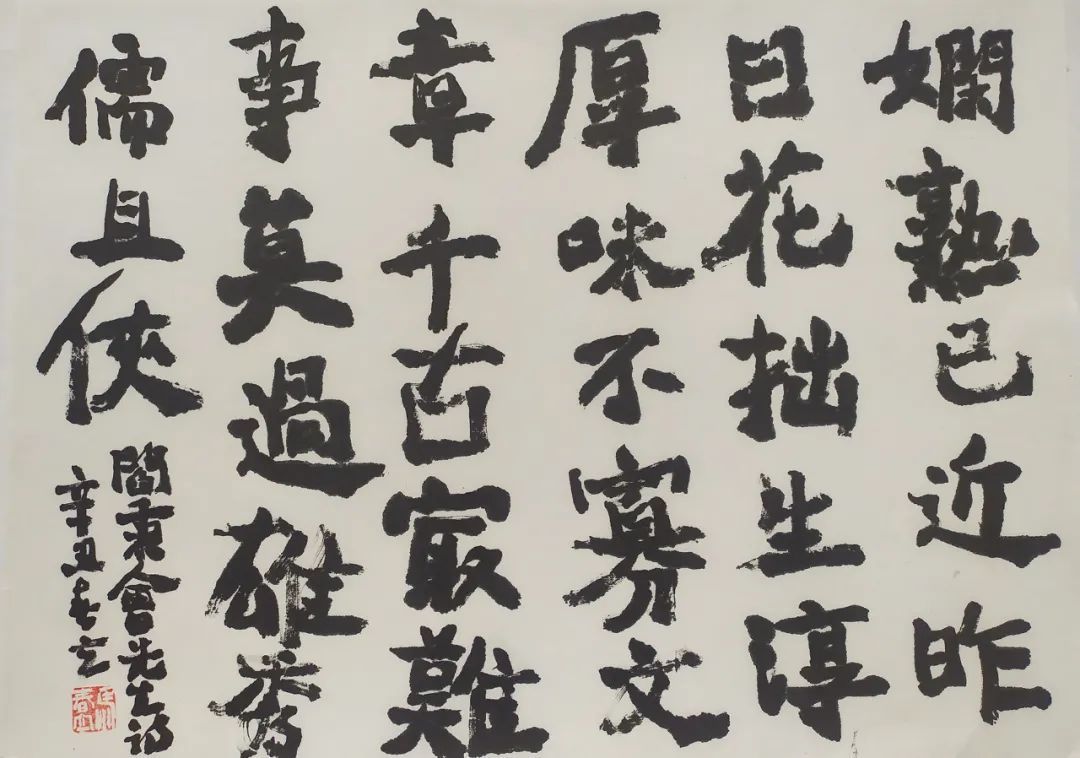 嫻熟已近昨
日花拙生淳
厚味不寡文
章千古㝡難
事莫過雄秀
儒且俠
閻秉會先生詩
辛丑春立